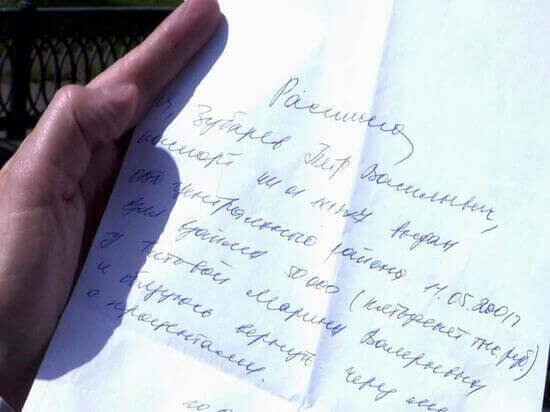 Расписка
Я, Зубарев Пётр Васильевич,
паспорт выдан
центрального района 11.05.2001г
взял взаймы 50000 (пятьдесят тыс. руб.)
у Титовой Марины Валерьевны
и обязуюсь вернуть через
с процентами.